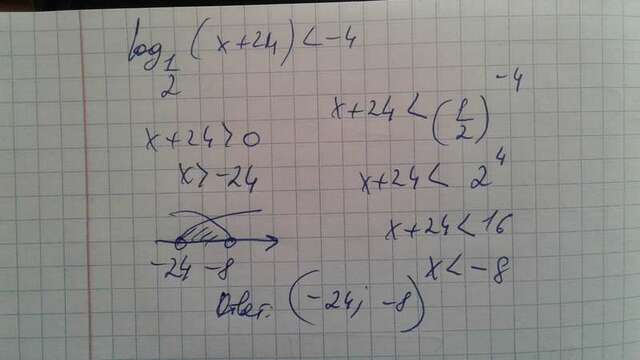 log_{1/2} (x+24) < -4
x+24 > 0
x > -24
x+24 < (1/2)^{-4}
x+24 < 2^4
x+24 < 16
x < -8
-24 -8
Ответ: (-24; -8)